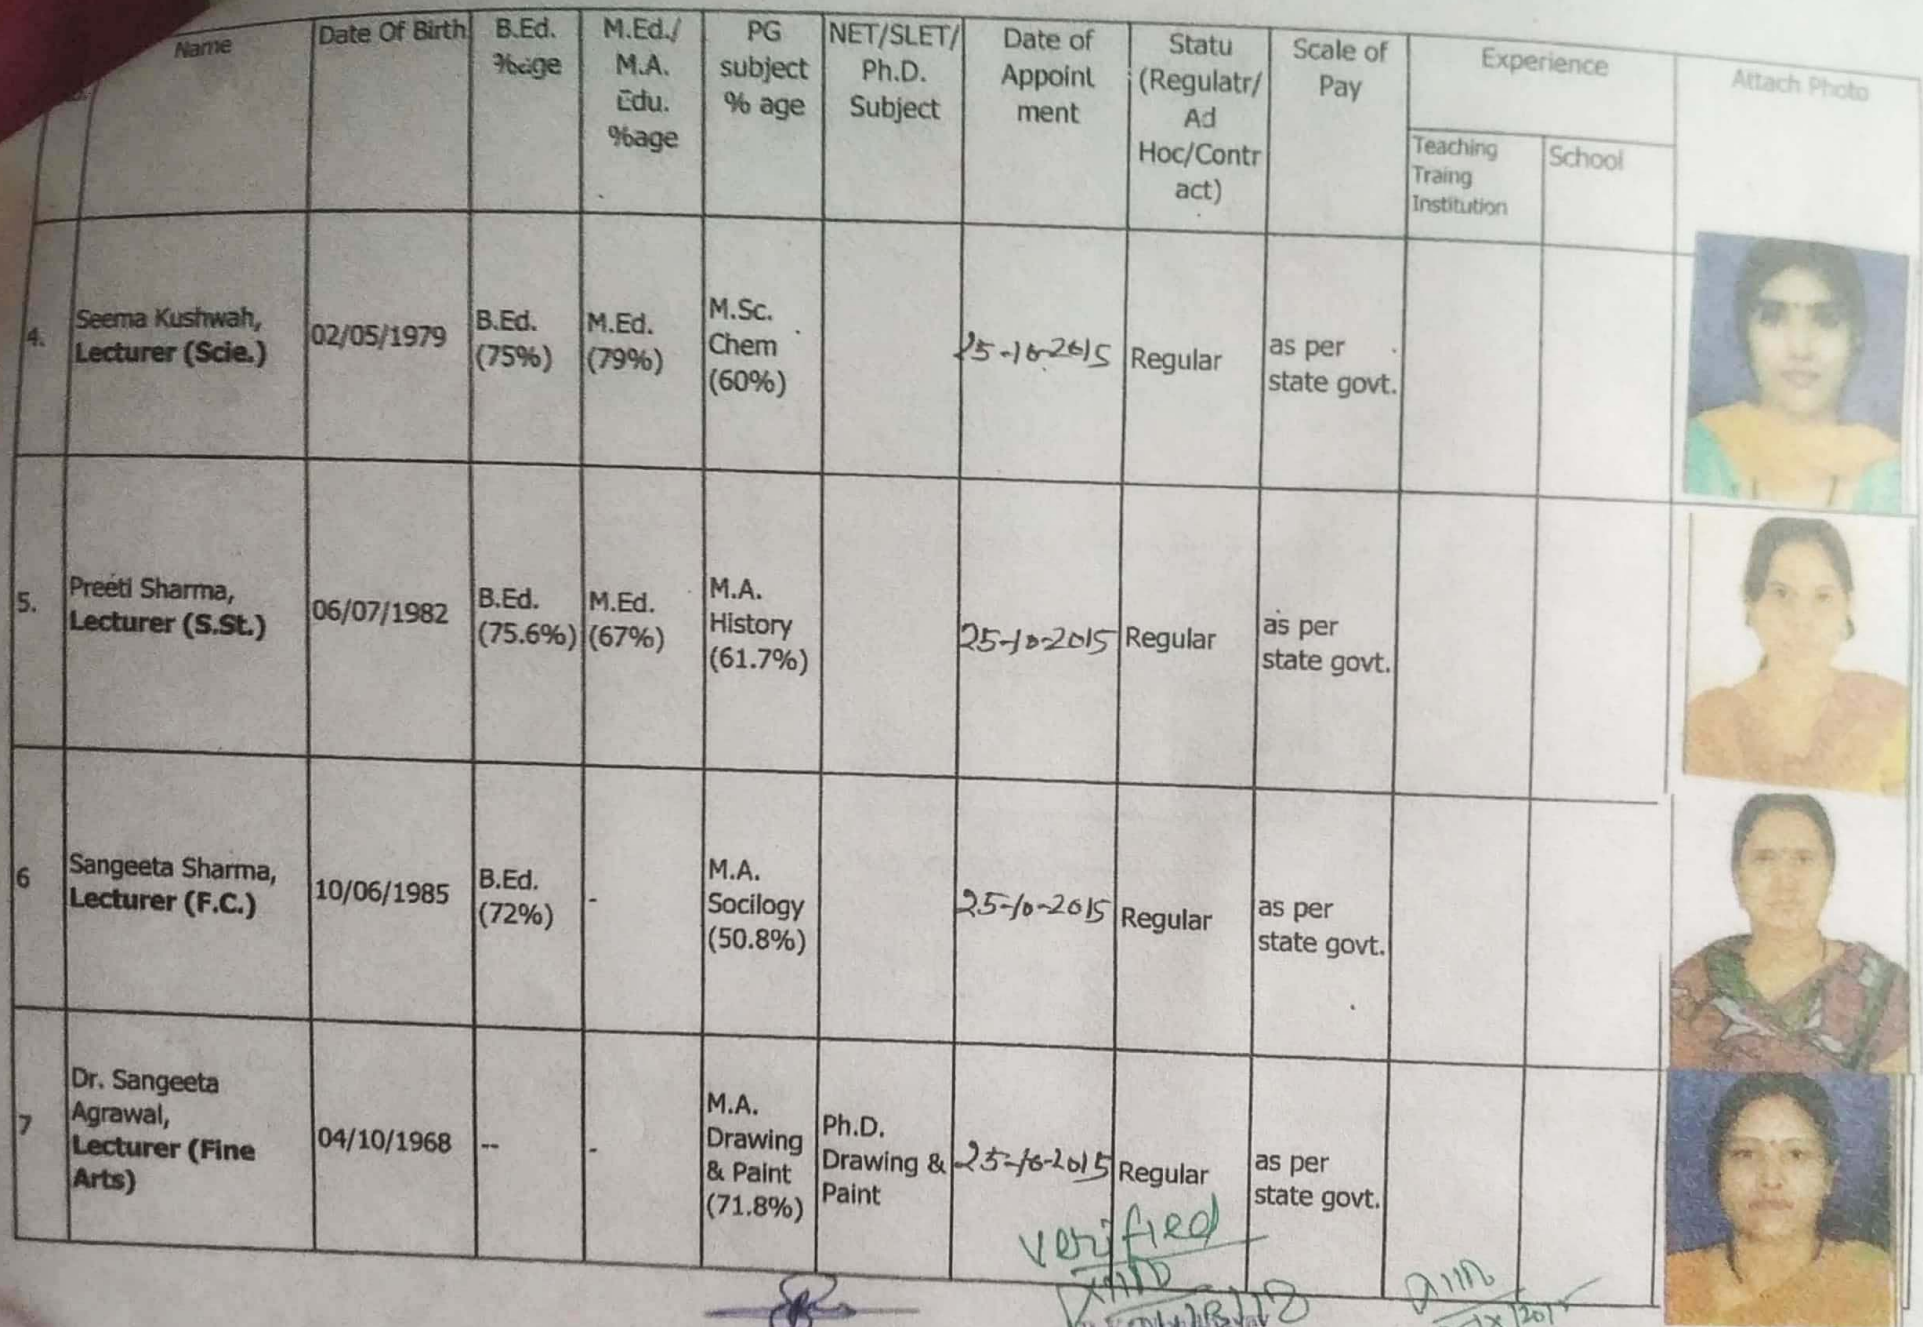 Name
Date Of Birth
B.Ed.
%age
M.Ed./
M.A.
Edu.
%age
PG
subject
% age
NET/SLET/
Ph.D.
Subject
Date of
Appoint
ment
Statu
(Regulatr/
Ad
Hoc/Contr
act)
Scale of
Pay
Experience
Teaching
Traing
Institution
School
Attach Photo
4.
Seema Kushwah,
Lecturer (Scie.)
02/05/1979
B.Ed.
(75%)
M.Ed.
(79%)
M.Sc.
Chem
(60%)
25-10-2015
Regular
as per
state govt.
5.
Preeti Sharma,
Lecturer (S.St.)
06/07/1982
B.Ed.
(75.6%)
M.Ed.
(67%)
M.A.
History
(61.7%)
25-10-2015
Regular
as per
state govt.
6
Sangeeta Sharma,
Lecturer (F.C.)
10/06/1985
B.Ed.
(72%)
-
M.A.
Socilogy
(50.8%)
25-10-2015
Regular
as per
state govt.
7
Dr. Sangeeta
Agrawal,
Lecturer (Fine
Arts)
04/10/1968
--
-
M.A.
Drawing
& Paint
(71.8%)
Ph.D.
Drawing &
Paint
25-10-2015
Regular
as per
state govt.
verified